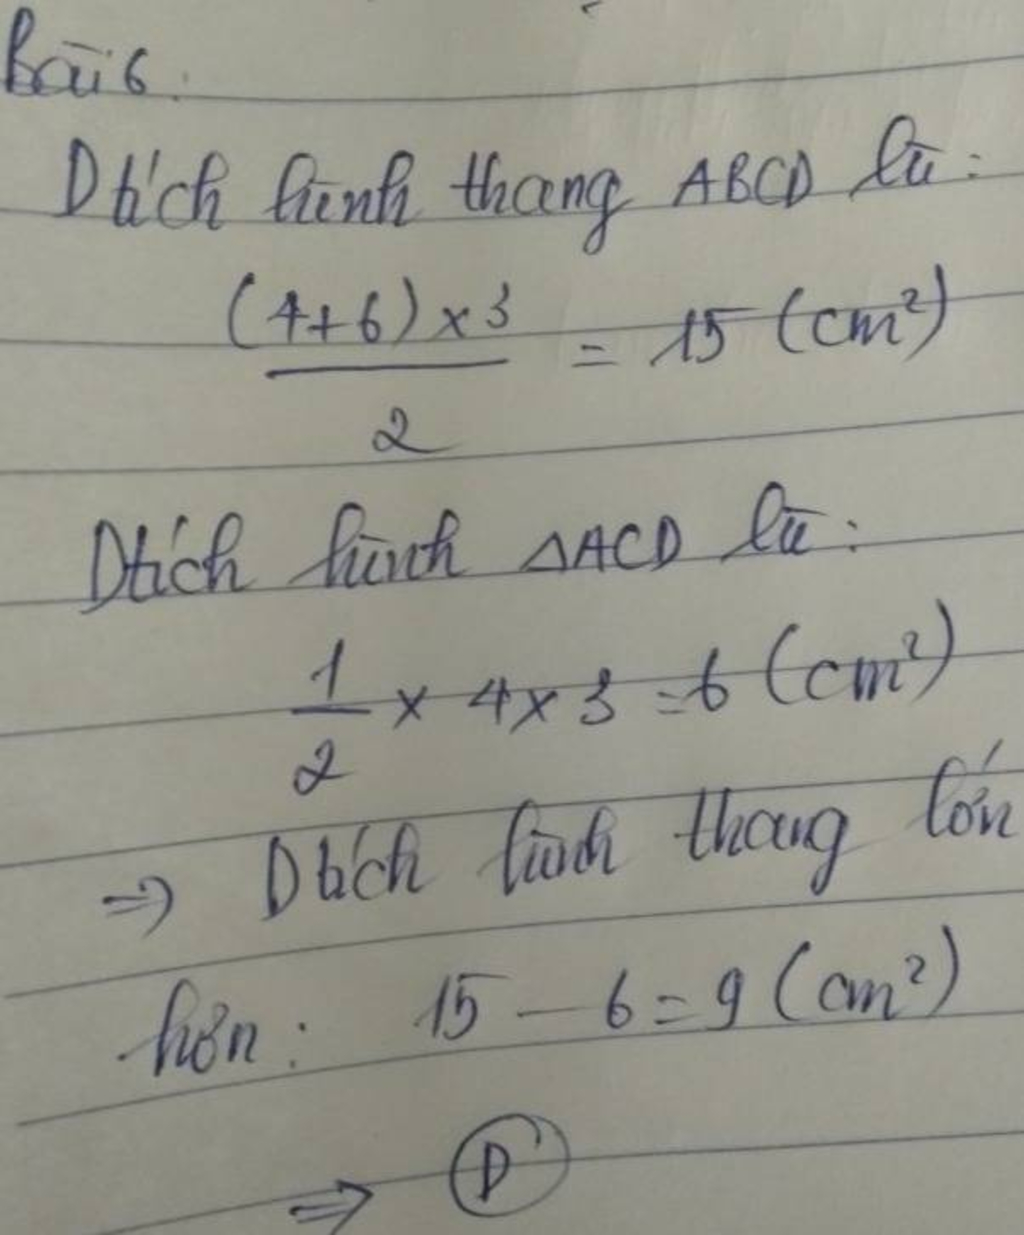 Bài 6.
Dtích hình thang ABCD là:
(4+6) x 3
_________ = 15 (cm²)
2
Dtích hình ΔACD là:
1/2 x 4 x 3 = 6 (cm²)
=> Dtích hình thang lớn
hơn: 15 - 6 = 9 (cm²)
=> D